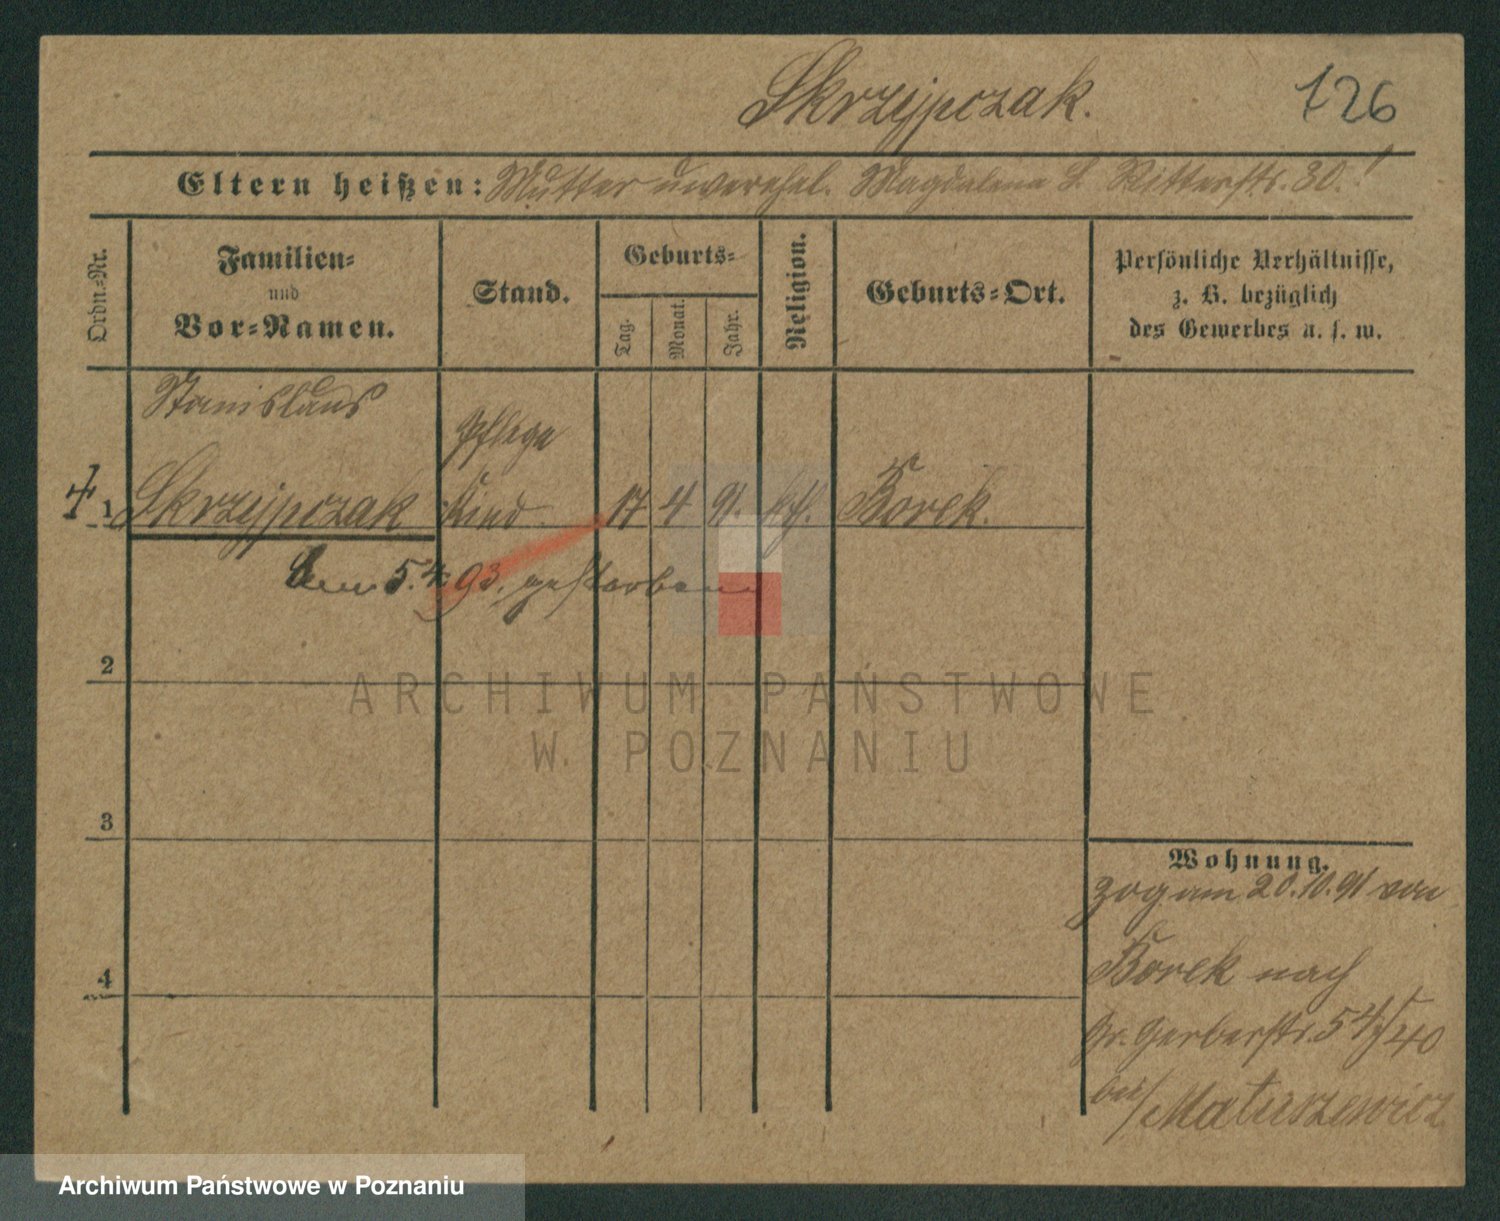 Skrzypczak.
126
Eltern heißen: Mutter unverehel. Magdalena S. Ritterstr. 30.!
Ordn.-Nr.
Familien-
und
Vor-Namen.
Stand.
Geburts-
Tag.
Monat.
Jahr.
Religion.
Geburts-Ort.
Persönliche Verhältnisse,
z. B. bezüglich
des Gewerbes u. s. w.
Stanislaus
Pflege
1 Skrzypczak Kind. 17 4 91. kth. Borek.
5.4.93. gestorben
2
ARCHIWUM PAŃSTWOWE
W POZNANIU
3
Wohnung.
zog am 20.10.91 von
4
Borek nach
Gr. Gerberstr. 54/40
bei Matuszewicz
Archiwum Państwowe w Poznaniu